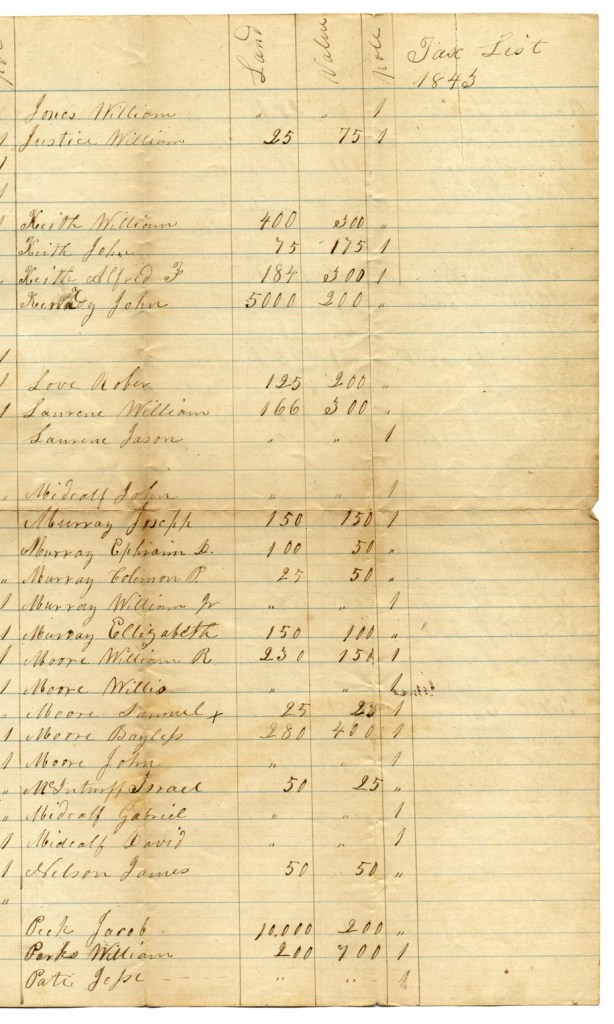 Land Value pole Tax List
1843
Jones William " " 1
Justice William 25 75 1
1
1
1 Keith William 400 300 "
Keith John 75 175 1
" Keith Alfred F 184 300 1
John 5000 200 "
1
1 Love Rober 125 200 "
1 Laurene William 166 300 "
Laurene Jason " " 1
" Midcalf John " " 1
Murray Joseph 150 150 1
Murray Ephraim D. 100 50 "
" Murray P. 25 50 "
1 Murray William Jr " " 1
1 Murray Ellizabeth 150 100 "
1 Moore William R 230 150 1
1 Moore Willis " " 1
" Moore Samuel x 25 25 1
1 Moore Bayless 280 400 1
1 Moore John " " 1
" McInturff Israel 50 25 "
" Midcalf Gabriel " " 1
1 Midcalf David " " 1
1 Nelson James 50 50 "
"
Peek Jacob 10.000 200 "
Parks William 200 700 1
Pate Jesse " " 1